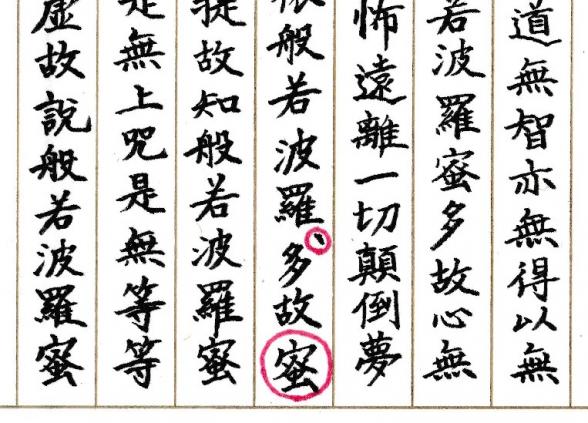 道無智亦無得以無
若波羅蜜多故心無
怖遠離一切顛倒夢
依般若波羅、多故蜜
提故知般若波羅蜜
是無上咒是無等等
虛故說般若波羅蜜